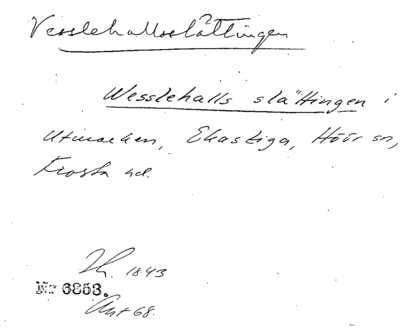 Vesslehallsslåttingen
Wesslehalls slättingen i
Utmarken, Ekastiga, Höör sn,
Frosta hd.
1843
Nr 6858.
Akt 68.